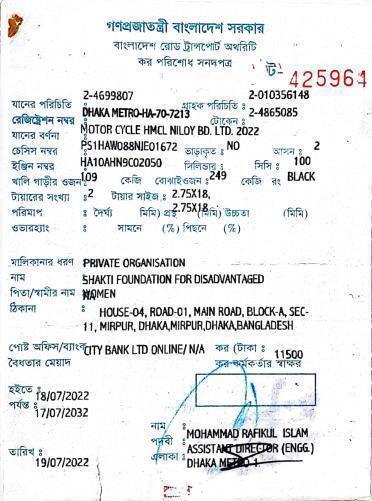 গণপ্রজাতন্ত্রী বাংলাদেশ সরকার
বাংলাদেশ রোড ট্রান্সপোর্ট অথরিটি
কর পরিশোধ সনদপত্র
ট- 425964
2-4699807 2-010356148
যানের পরিচিতি : গ্রাহক পরিচিতি :
রেজিষ্ট্রেশন নম্বর : DHAKA METRO-HA-70-7213 টোকেন : 2-4865085
যানের বর্ণনা : MOTOR CYCLE HMCL NILOY BD. LTD. 2022
চেসিস নম্বর : PS1HAW088NJE01672 ভাড়াকৃত : NO আসন : 2
ইঞ্জিন নম্বর : HA10AHN9C02050 সিলিন্ডার : সিসি : 100
খালি গাড়ীর ওজন : 109 কেজি বোঝাইওজন : 249 কেজি রং BLACK
টায়ারের সংখ্যা : 2 টায়ার সাইজ : 2.75X18,
2.75X18
পরিমাপ : দৈর্ঘ্য মিমি) প্রস্থ মিমি) উচ্চতা (মিমি)
ওভারহ্যাং : সামনে (%) পিছনে (%)
মালিকানার ধরণ : PRIVATE ORGANISATION
নাম : SHAKTI FOUNDATION FOR DISADVANTAGED WOMEN
পিতা/স্বামীর নাম : NA
ঠিকানা : HOUSE-04, ROAD-01, MAIN ROAD, BLOCK-A, SEC-
11, MIRPUR, DHAKA,MIRPUR,DHAKA,BANGLADESH
পোষ্ট অফিস/ব্যাংক : CITY BANK LTD ONLINE/ N/A কর (টাকা : 11500
বৈধতার মেয়াদ কর কর্মকর্তার স্বাক্ষর
হইতে : 18/07/2022
পর্যন্ত : 17/07/2032
নাম : MOHAMMAD RAFIKUL ISLAM
পদবী : ASSISTANT DIRECTOR (ENGG.)
এলাকা : DHAKA METRO 1
তারিখ : 19/07/2022